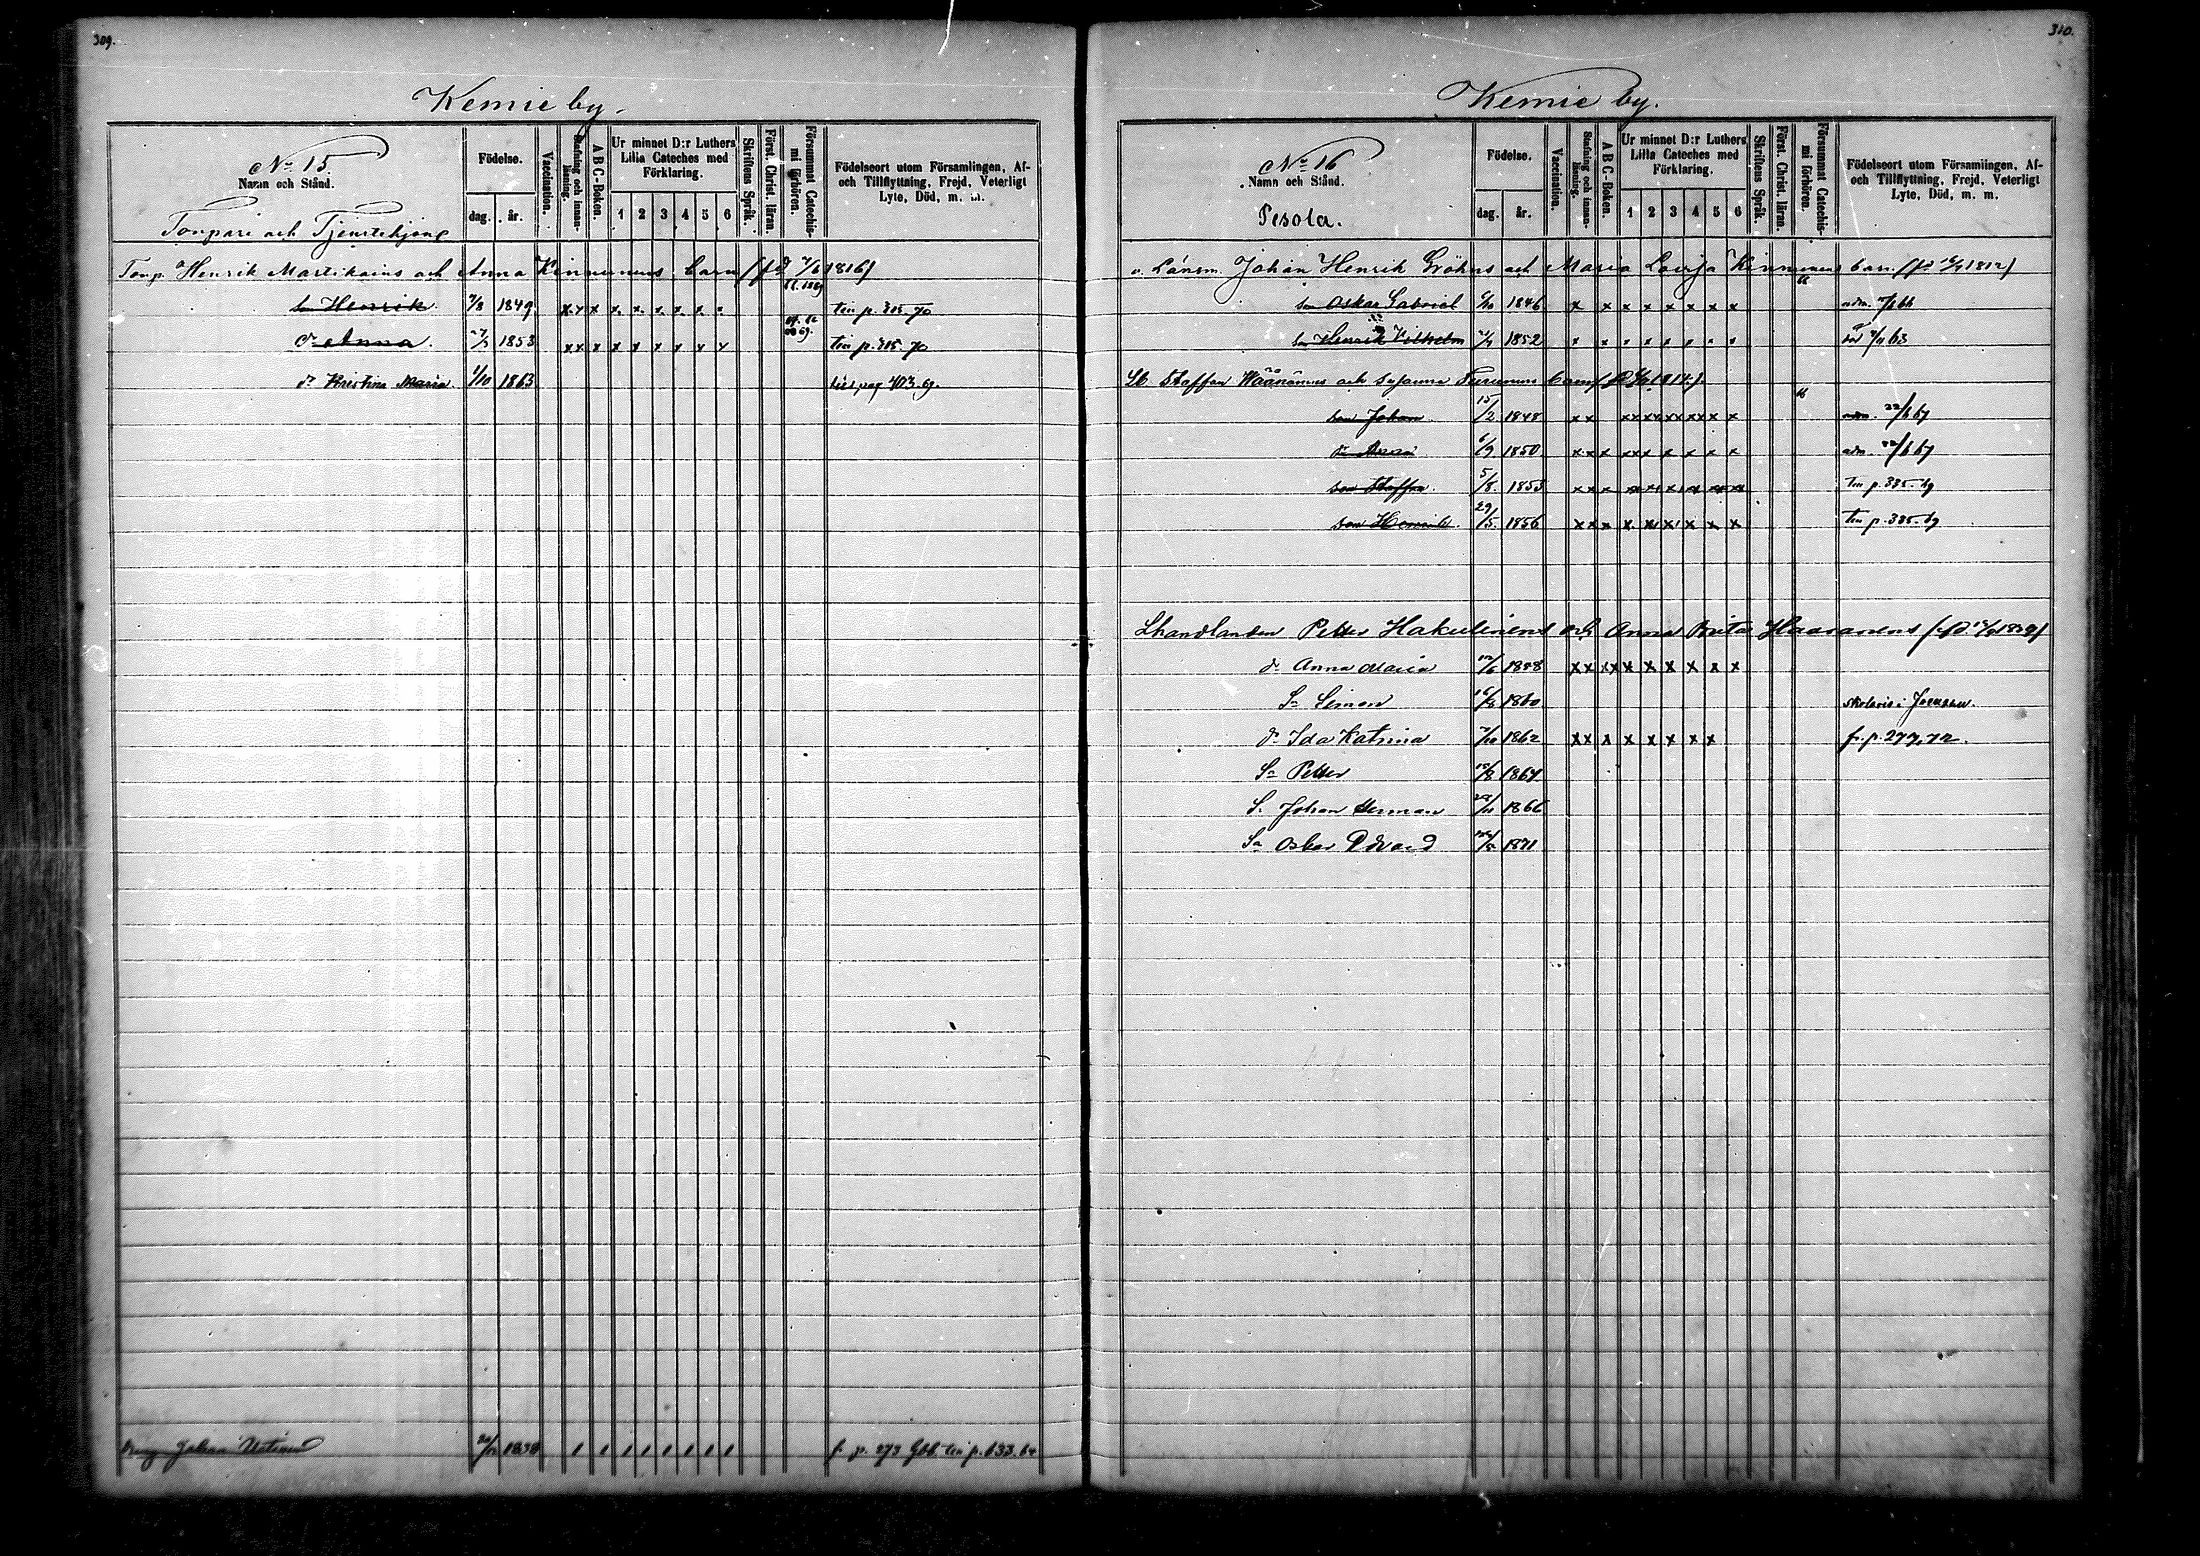 309.
Kemie by.
No 15.
Namn och Stånd.
Torpare och Tjenstehjon
Födelse.
dag. år.
Vaccination.
Stafning och innan-läsning.
A B C-Boken.
Ur minnet D:r Luthers Lilla Cateches med Förklaring.
1 2 3 4 5 6
Skriftens Språk.
Först. Christ. läran.
Försummat Catechis-mi förhören.
Födelseort utom Församlingen, Af- och Tillflyttning, Frejd, Veterligt Lyte, Död, m. m.
Torp. Henrik Martikains och Anna Kinnunens barn (fd 7/6 1816)
son Henrik 7/8 1849 x x x x x x x x x till p. 305-70
dr Anna 1853 x x x x x x x x x till p. 315. 70
dr Kristina Maria 1/10 1863 till pag 403. 69.
Dräng Johan 1838 f. p. 273 till p. 133. 64
310.
Kemie by.
No 16
Namn och Stånd.
Pesola.
Födelse.
dag. år.
Vaccination.
Stafning och innan-läsning.
A B C-Boken.
Ur minnet D:r Luthers Lilla Cateches med Förklaring.
1 2 3 4 5 6
Skriftens Språk.
Först. Christ. läran.
Försummat Catechis-mi förhören.
Födelseort utom Församlingen, Af- och Tillflyttning, Frejd, Veterligt Lyte, Död, m. m.
v. Länsm. Johan Henrik Gröhns och Maria Lovisa Kinnunens barn (fd 1812)
son Oskar Gabriel 1846 x x x x x x x x adm.
son Henrik Vilhelm 1852 död 63
Staffan Häänänens och Susanna Turunens barn 1814.)
son Johan 15/2 1848 x x x x x x x x x x adm. 22/6 67
dr Anna 6/9 1850 x x x x x x x x x adm. 22/6 67
son Staffan 5/8 1853 x x x x x x x x x till p. 335-69
son Henrik 29/5 1856 x x x x x x x x x till p. 335-69
Lhandlanden Petter Hakulinens och Anna Brita Haaranens
dr Anna Maria 1858 x x x x x x x x x
Sn Simon 16/8 1860 skolevis i Joensuu.
dr Ida Katrina 7/10 1862 x x x x x x x x fr. p. 277, 72.
Sn Petter 1864
S. Johan Herman 1866
Sn Oskar Edvard 1871